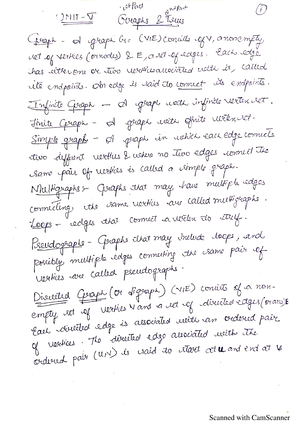 UNIT - V
1st Part 2nd Part
Graphs & Trees
1
Graph - A graph G = (V, E) consists of V, a nonempty
set of vertices (or nodes) & E, a set of edges. Each edge
has either one or two vertices associated with it, called
its endpoints. An edge is said to connect its endpoints.
Infinite Graph - A graph with infinite vertex set.
Finite Graph - A graph with finite vertex set.
Simple graph - A graph in which each edge connects
two different vertices & where no two edges connect the
same pair of vertices is called a simple graph.
Multigraphs - Graphs that may have multiple edges
connecting the same vertices are called multigraphs.
Loops - edges that connect a vertex to itself.
Pseudographs - Graphs that may include loops, and
possibly multiple edges connecting the same pair of
vertices are called pseudographs.
Directed Graph (or digraph) (V, E) consists of a non-
empty set of vertices V and a set of directed edges (or arcs) E
Each directed edge is associated with an ordered pair
of vertices. The directed edge associated with the
ordered pair (u, v) is said to start at u and end at v
Scanned with CamScanner